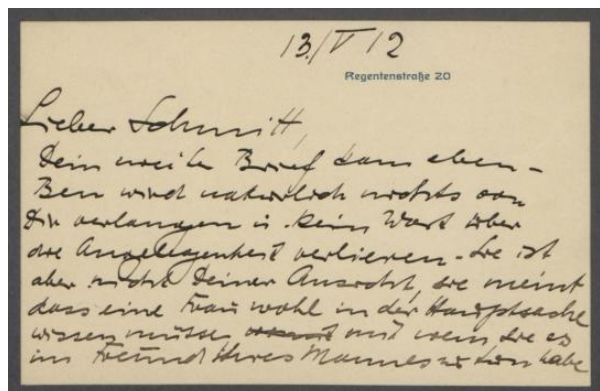 13./V 12
Regentenstraße 20
Lieber Schmitt,
Dein zweiter Brief kam eben -
Ben wird natürlich nichts von
Dir verlangen u. kein Wort über
die Angelegenheit verlieren. Sie ist
aber nicht Deiner Ansicht, sie meint
dass eine Frau wohl in der Hauptsache
wissen müsse mit wem sie es
im Freund Ihres Mannes zu tun habe